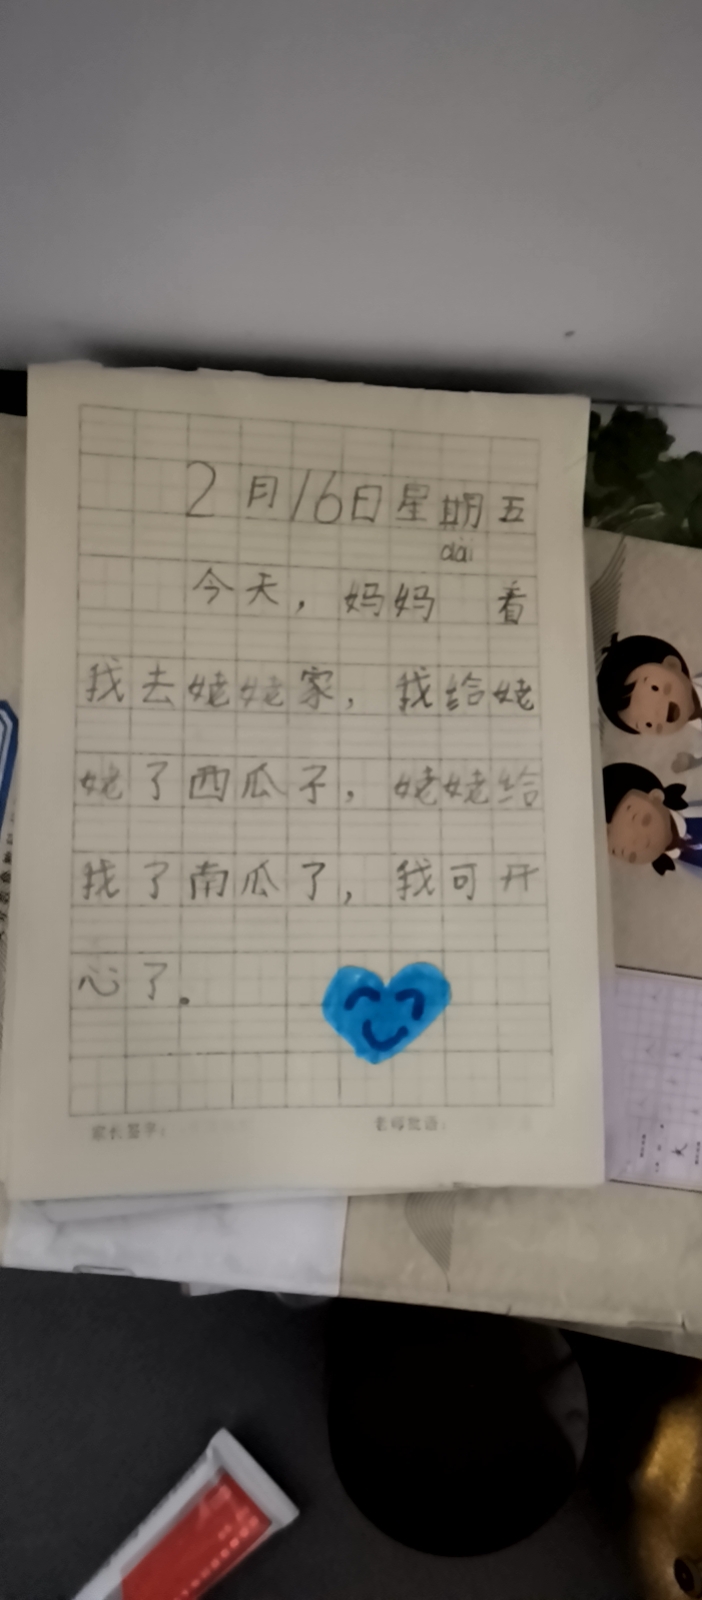 2月16日星期五
dài
今天，妈妈 看
我去姥姥家，我给姥
姥了西瓜子，姥姥给
我了南瓜了，我可开
心了。
家长签字： 老师批语：